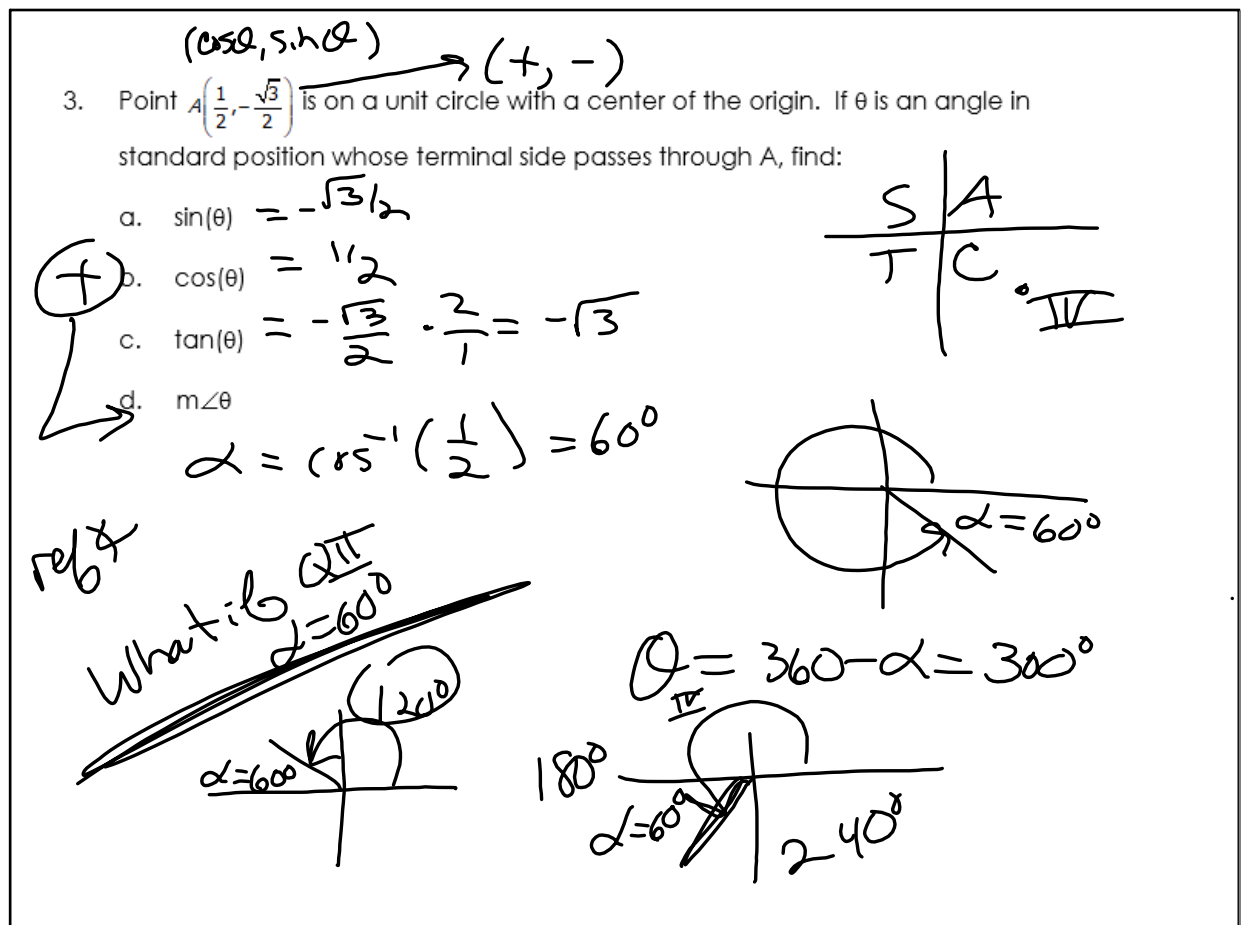 (cosθ, sinθ) → (+, -)
3. Point A(1/2, -√3/2) is on a unit circle with a center of the origin. If θ is an angle in
standard position whose terminal side passes through A, find:
S A
T C
IV
a. sin(θ) = -√3/2
b. cos(θ) = 1/2
+
c. tan(θ) = -√3/2 · 2/1 = -√3
d. m∠θ
α = cos⁻¹(1/2) = 60°
α = 60°
ref∡
What if QII
α=60°
θ IV = 360-α = 300°
120°
α=60°
180°
α=60°
240°